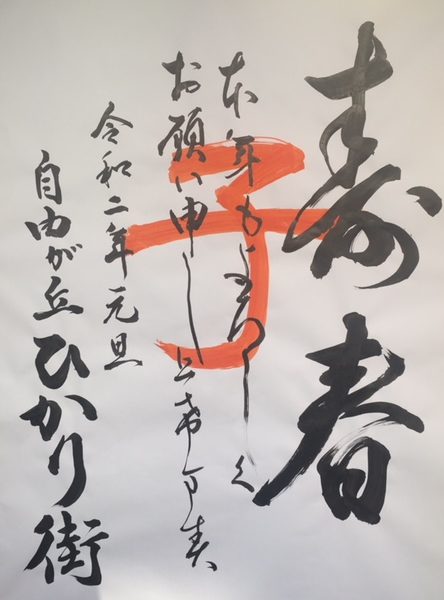 寿春
子
本年もよろしく
お願い申し上希万す
令和二年元旦
自由が丘ひかり街